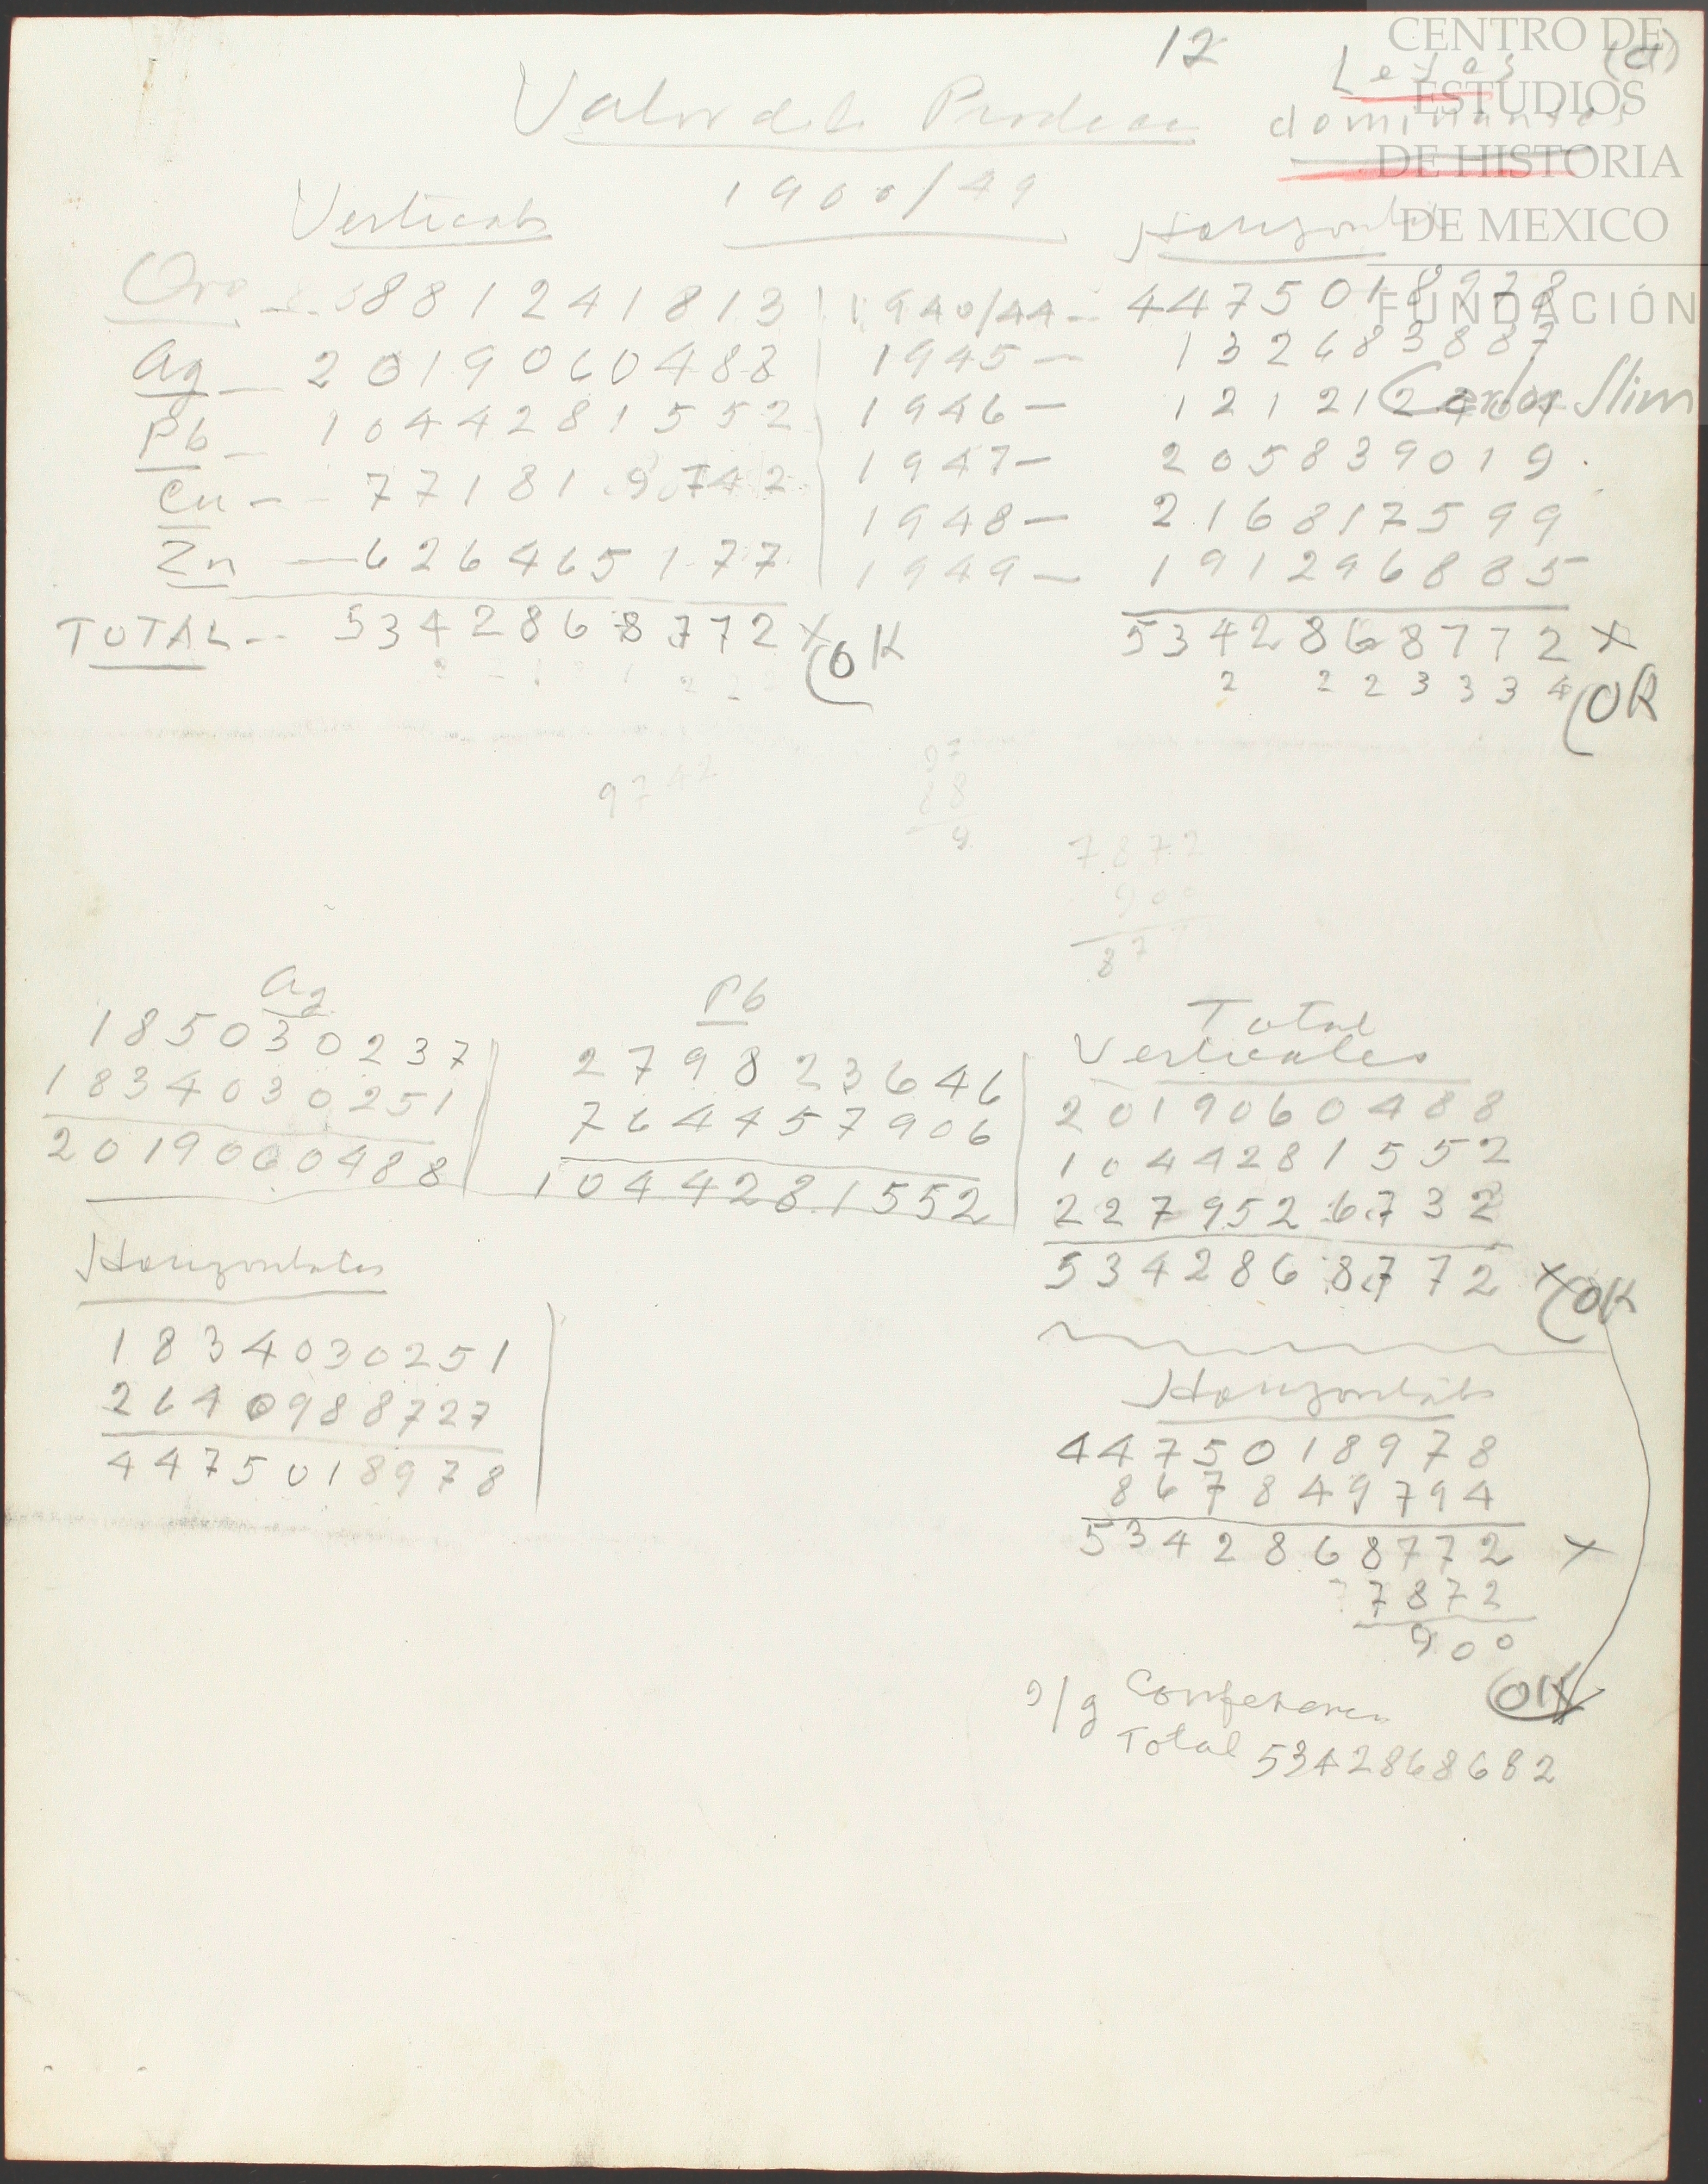 12
Leyes (a)
Valor de la Producc dominantes
1900/49
Verticales
Horizontal
Oro -- 881241813 1940/44 - 4475018978
Ag - 2019060488 1945 - 132683887
Pb - 1044281552 1946 - 121212404
Cu - 771819742 1947 - 205839019
1948 - 216817599
Zn - 626465177 1949 - 191296885
TOTAL -- 5342868772 X OK 5342868772 X
2 2 2 3 3 3 4 OK
9742
97
88
9
7872
900
87
Ag
185030237
1834030251
2019060488
Pb
279823646
764457906
1044281552
Total
Verticales
2019060488
1044281552
2279526732
5342868772 X OK
Horizontales
1834030251
2640988727
4475018978
Horizontales
4475018978
867849794
5342868772 X
7872
900
OK
Total 5342868682
CENTRO DE
ESTUDIOS
DE HISTORIA
DE MEXICO
FUNDACIÓN
Carlos Slim